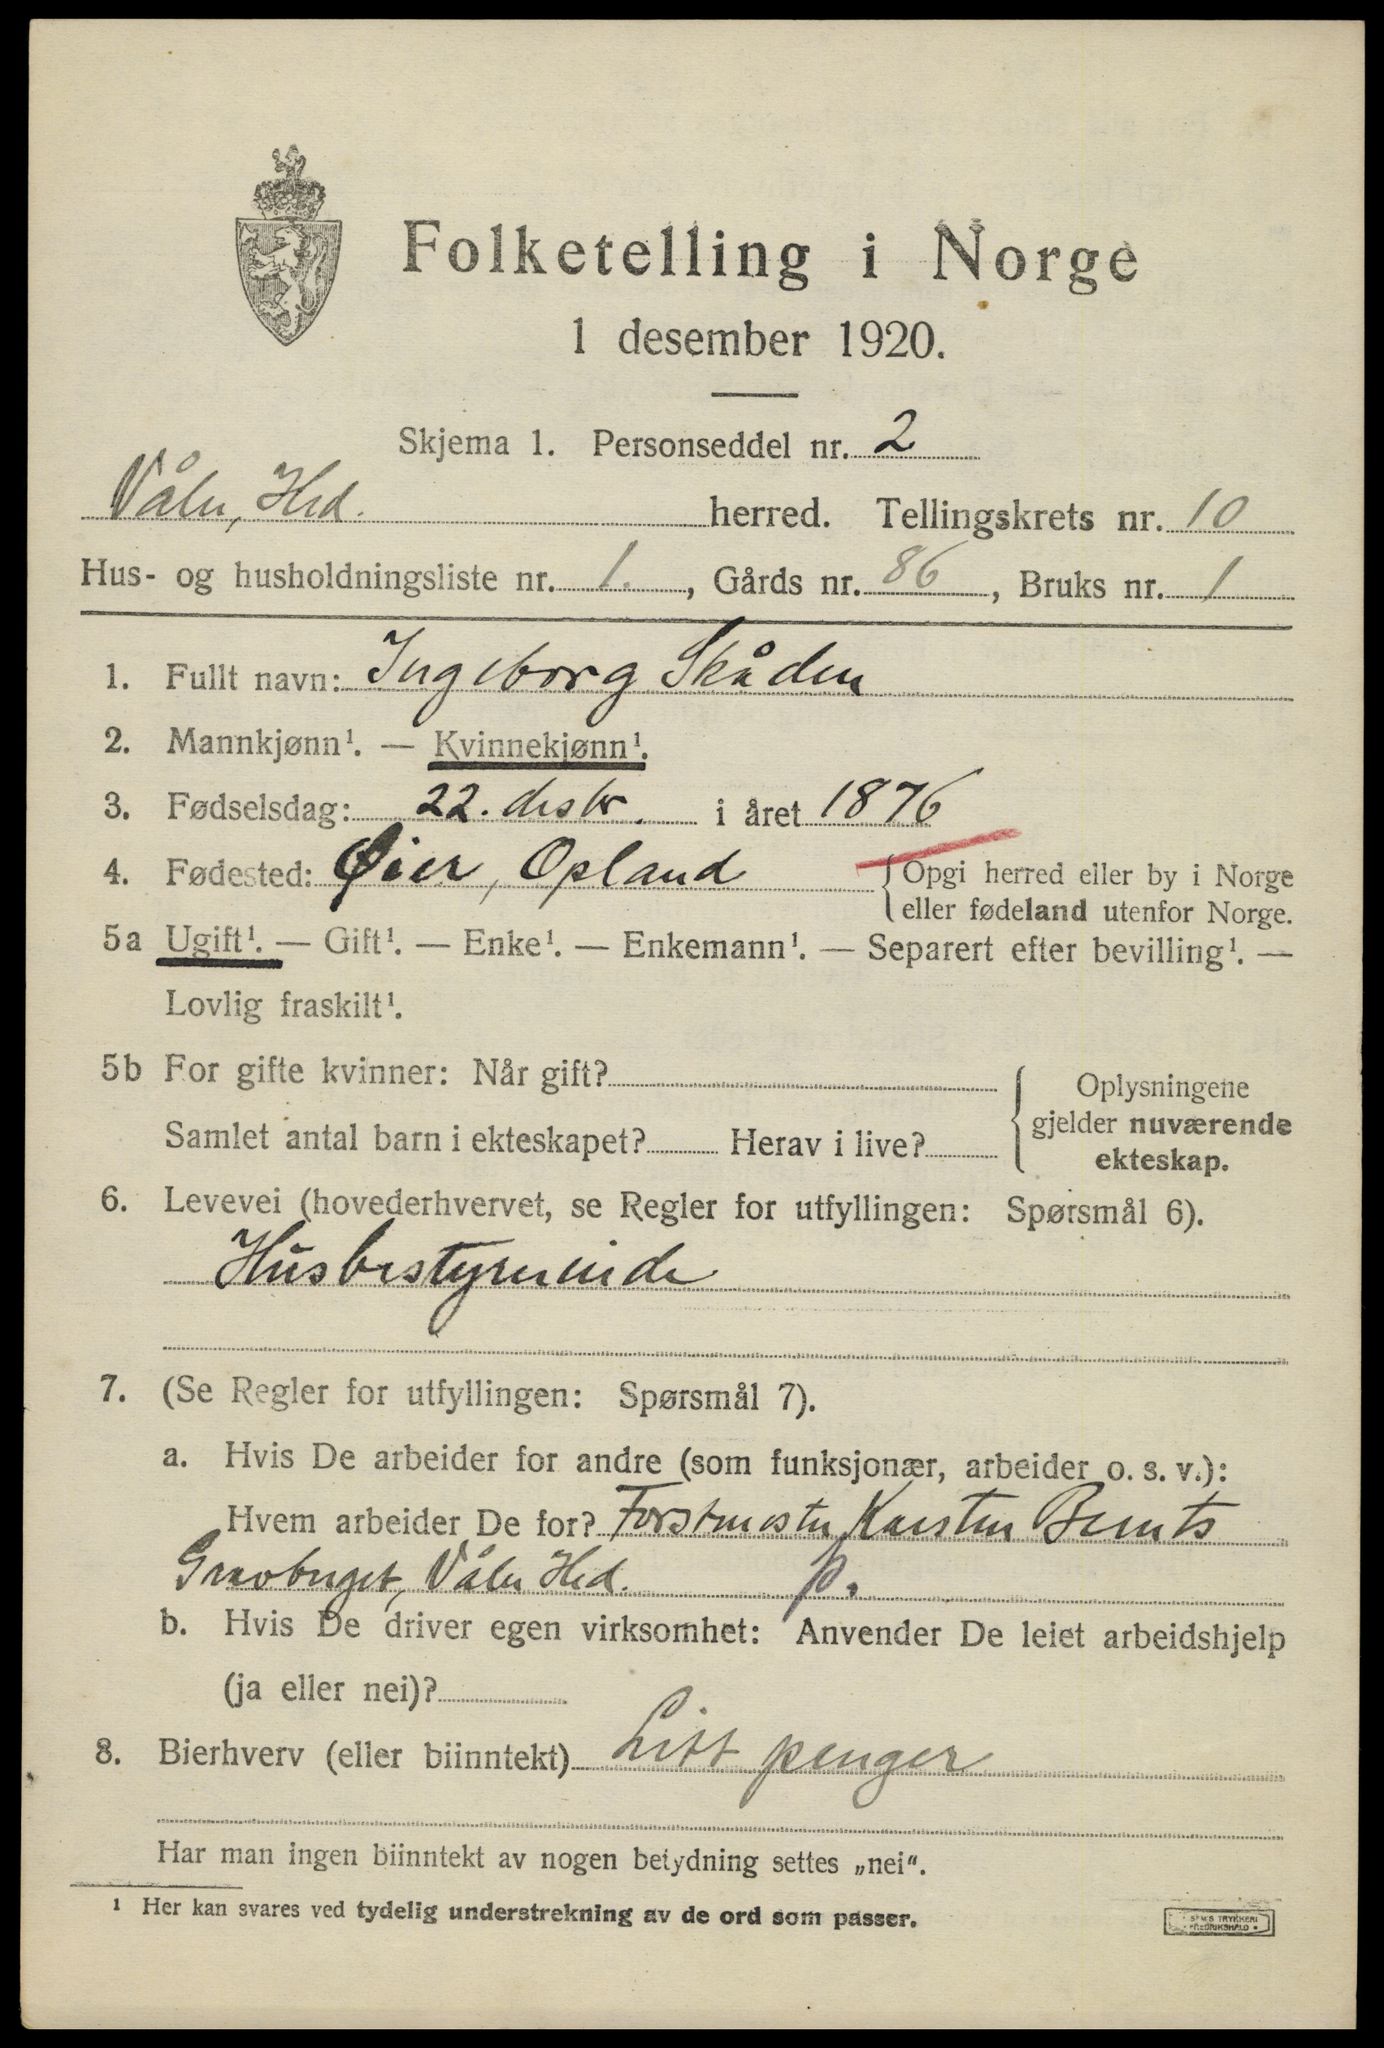 Folketelling i Norge
1 desember 1920.
Skjema 1. Personseddel nr. 2
Våler, Hed. herred. Tellingskrets nr. 10
Hus- og husholdningsliste nr. 1. , Gårds nr. 86 , Bruks nr. 1
1. Fullt navn: Ingeborg Skåden
2. Mannkjønn¹. — Kvinnekjønn¹.
3. Fødselsdag: 22. desbr. i året 1876
4. Fødested: Øier, Opland { Opgi herred eller by i Norge
eller fødeland utenfor Norge.
5a Ugift¹. — Gift¹. — Enke¹. — Enkemann¹. — Separert efter bevilling¹. —
Lovlig fraskilt¹.
5b For gifte kvinner: Når gift? { Oplysningene
gjelder nuværende
Samlet antal barn i ekteskapet? Herav i live?
ekteskap.
6. Levevei (hovederhvervet, se Regler for utfyllingen: Spørsmål 6).
Husbestyrerinde
7. (Se Regler for utfyllingen: Spørsmål 7).
a. Hvis De arbeider for andre (som funksjonær, arbeider o. s. v.):
Hvem arbeider De for? Forstmester Karsten Bernts
Gravberget, Våler Hed. p.
b. Hvis De driver egen virksomhet: Anvender De leiet arbeidshjelp
(ja eller nei)?
8. Bierhverv (eller biinntekt) Litt penger
Har man ingen biinntekt av nogen betydning settes „nei“.
¹ Her kan svares ved tydelig understrekning av de ord som passer.
TRYKKERI
FREDRIKSHALD